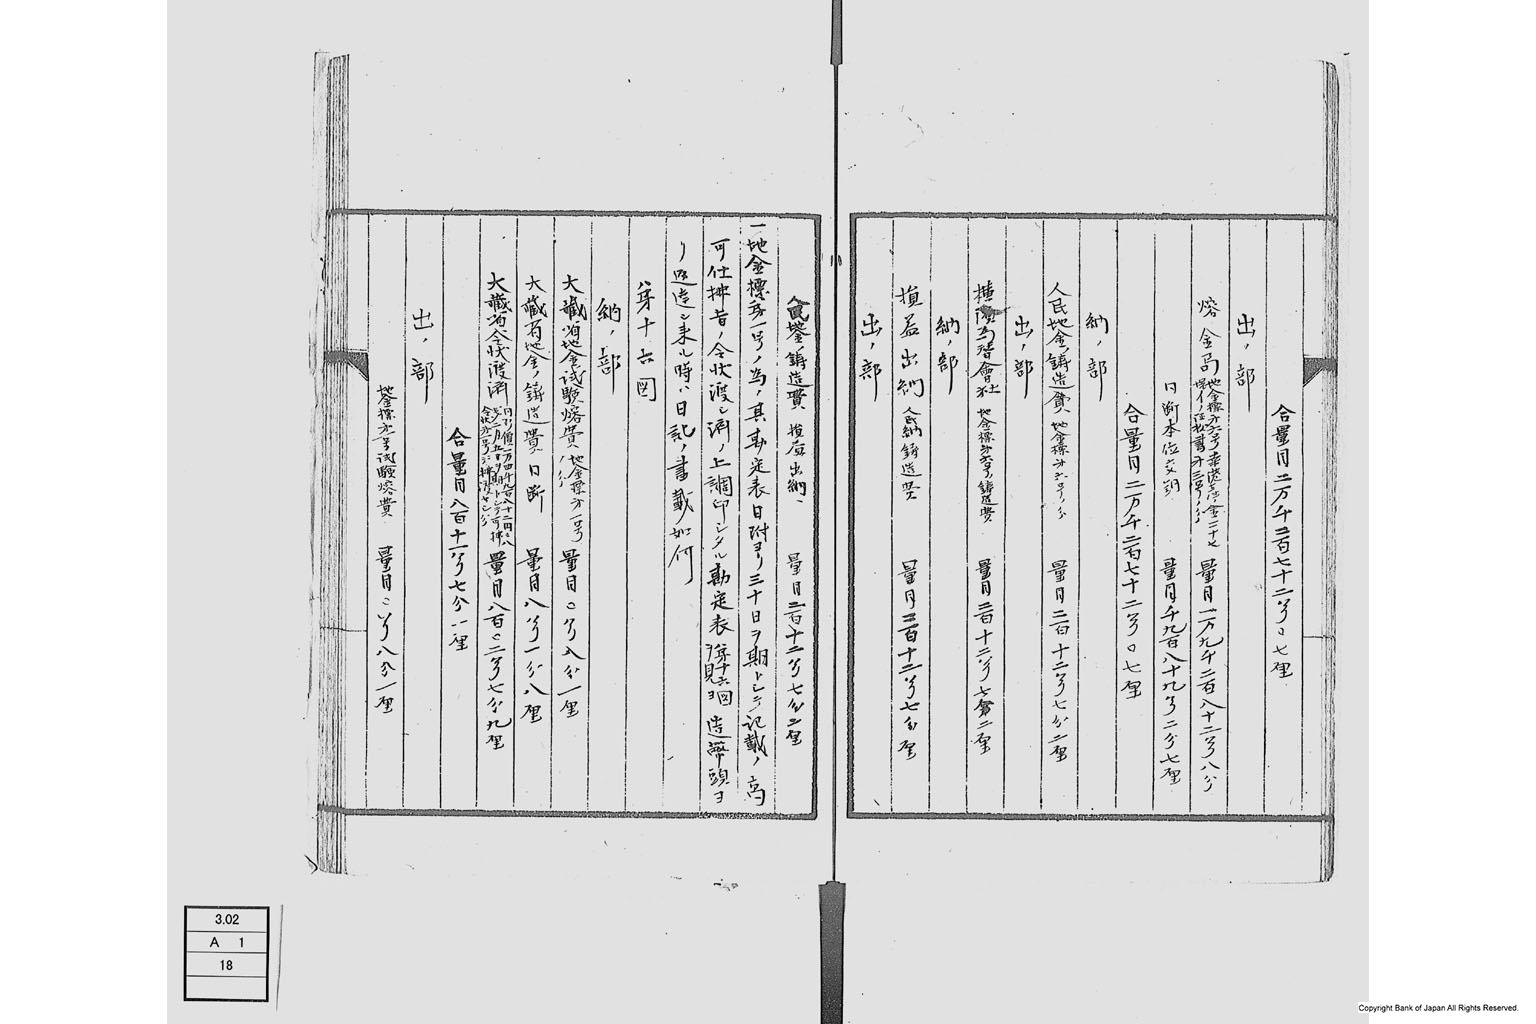 合量目二万千二百七十二匁〇七厘
出ノ部
熔金局 地金標方六号
量目一万九千二百八十二匁八分
同断本位交明
量目千九百八十九匁二分七厘
合量目二万千二百七十二匁〇七厘
納ノ部
人民地金鋳造費 地金標方六号ノ分
量目二百十二匁七分二厘
出ノ部
横濱為替會社 地金標方六号鋳造費
量目二百十二匁七分二厘
納ノ部
損益出納 人民納鋳造費
量目二百十二匁七分二厘
出ノ部
人民地金鋳造費 損益出納ヘ
量目二百十二匁七分二厘
一地金標方一号ノ為ノ其勘定表日附ヨリ三十日ヲ期トシテ記載ノ高
可仕拂旨ノ令状渡シ済ノ上調印シタル勘定表 第十六図ヲ見ヨ 造幣頭ヨ
リ逓達シ来ル時ハ日記ノ書載如何
第十六図
納ノ部
大蔵省地金試験熔費 地金標方一号ノ分
量目〇匁五分一厘
大蔵省地金ノ鋳造費 同断
量目八匁一分八厘
大蔵省令状渡済
量目八百〇二匁七分九厘
合量目八百十一匁七分一厘
出ノ部
地金標方一号試験熔費
量目〇匁八分一厘
3.02
A 1
18
Copyright Bank of Japan All Rights Reserved.